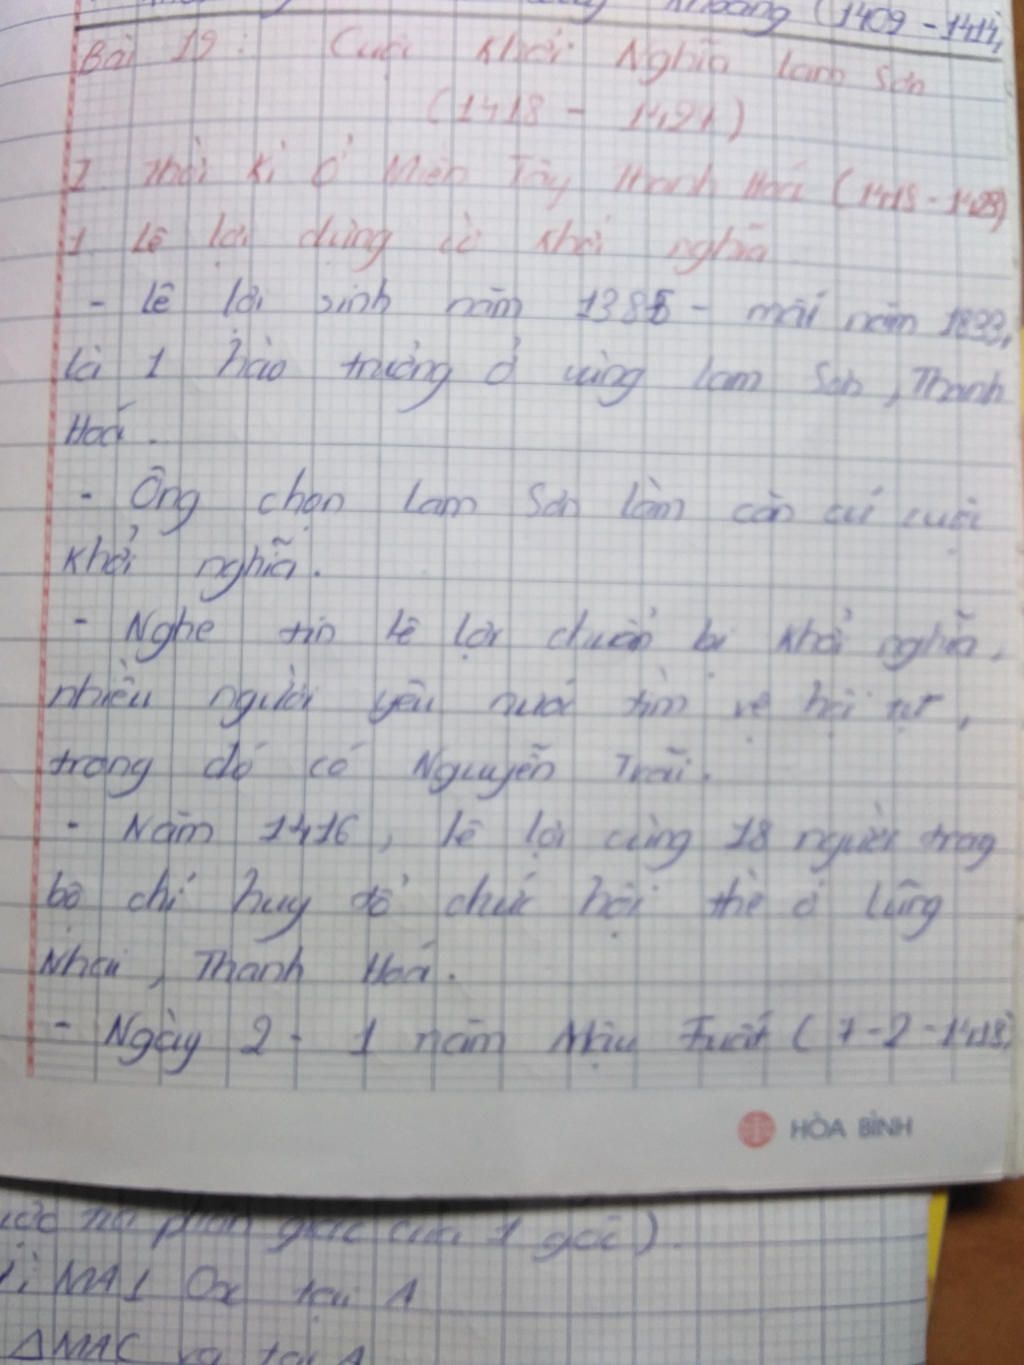 Khoáng (1409 - 1414)
Bài 19: Cuộc Khởi Nghĩa Lam Sơn
(1418 - 1427)
I. Thời kì ở Miền Tây Thanh Hoá (1418 - 1423)
1. Lê Lợi dựng cờ khởi nghĩa
- Lê Lợi sinh năm 1385 - mất năm 1833,
là 1 hào trưởng ở vùng Lam Sơn, Thanh
Hoá.
- Ông chọn Lam Sơn làm căn cứ cuộc
khởi nghĩa.
- Nghe tin Lê Lợi chuẩn bị khởi nghĩa,
nhiều người yêu nước tìm về hội tụ,
trong đó có Nguyễn Trãi.
- Năm 1416, Lê Lợi cùng 18 người trong
bộ chỉ huy tổ chức hội thề ở Lũng
Nhai, Thanh Hoá.
- Ngày 2 - 1 năm Mậu Tuất (7-2-1418)
HÒA BÌNH
phân giác của 1 góc).
MA ⊥ Ox tại A
ΔMAC tại A